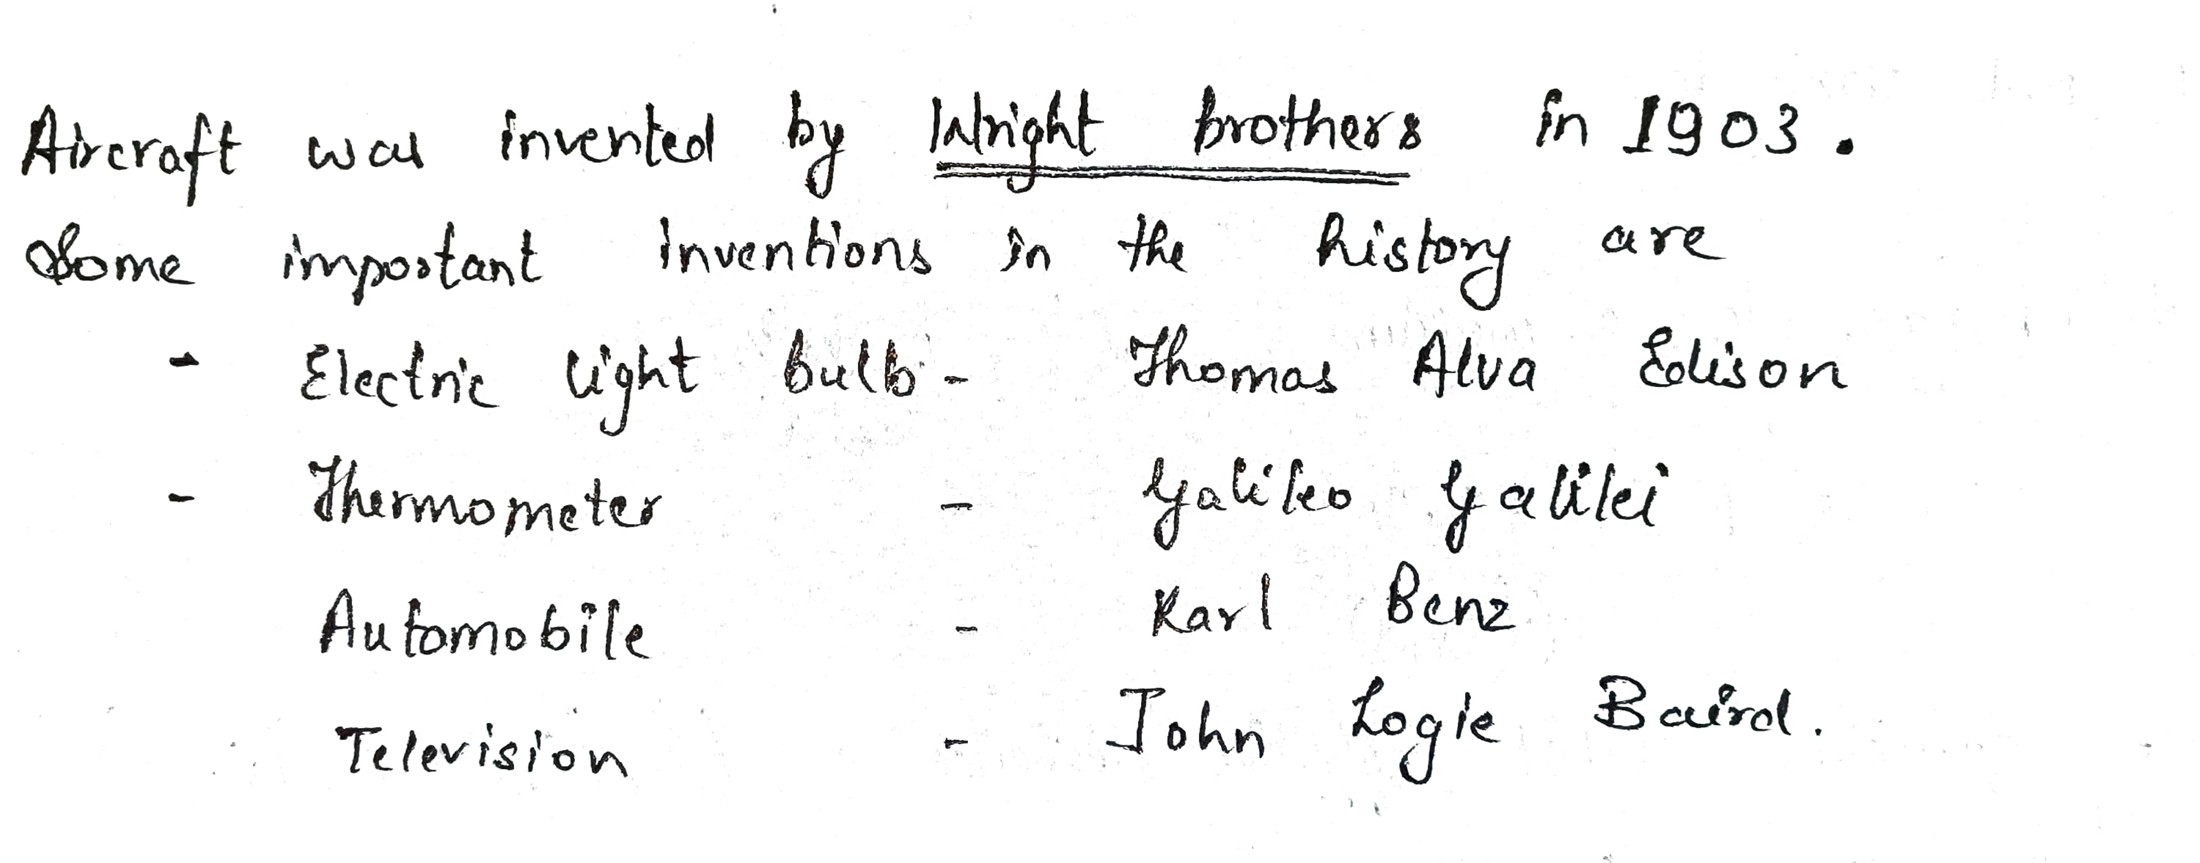 Aircraft was invented by Wright brothers in 1903.
Some important inventions in the history are
- Electric light bulb - Thomas Alva Edison
- Thermometer - Galileo Galilei
Automobile - Karl Benz
Television - John Logie Baird.